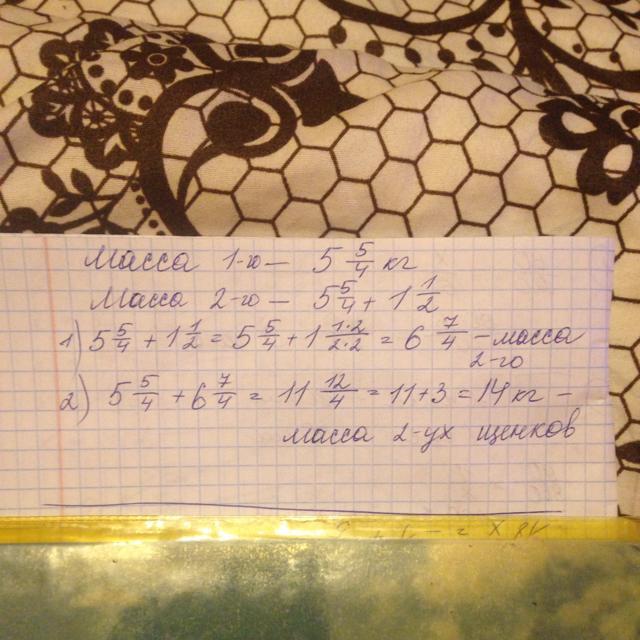 Масса 1-го — 5 5/4 кг
Масса 2-го — 5 5/4 + 1 1/2
1) 5 5/4 + 1 1/2 = 5 5/4 + 1 1·2/2·2 = 6 7/4 — масса
2-го
2) 5 5/4 + 6 7/4 = 11 12/4 = 11+3 = 14 кг —
масса 2-ух щенков